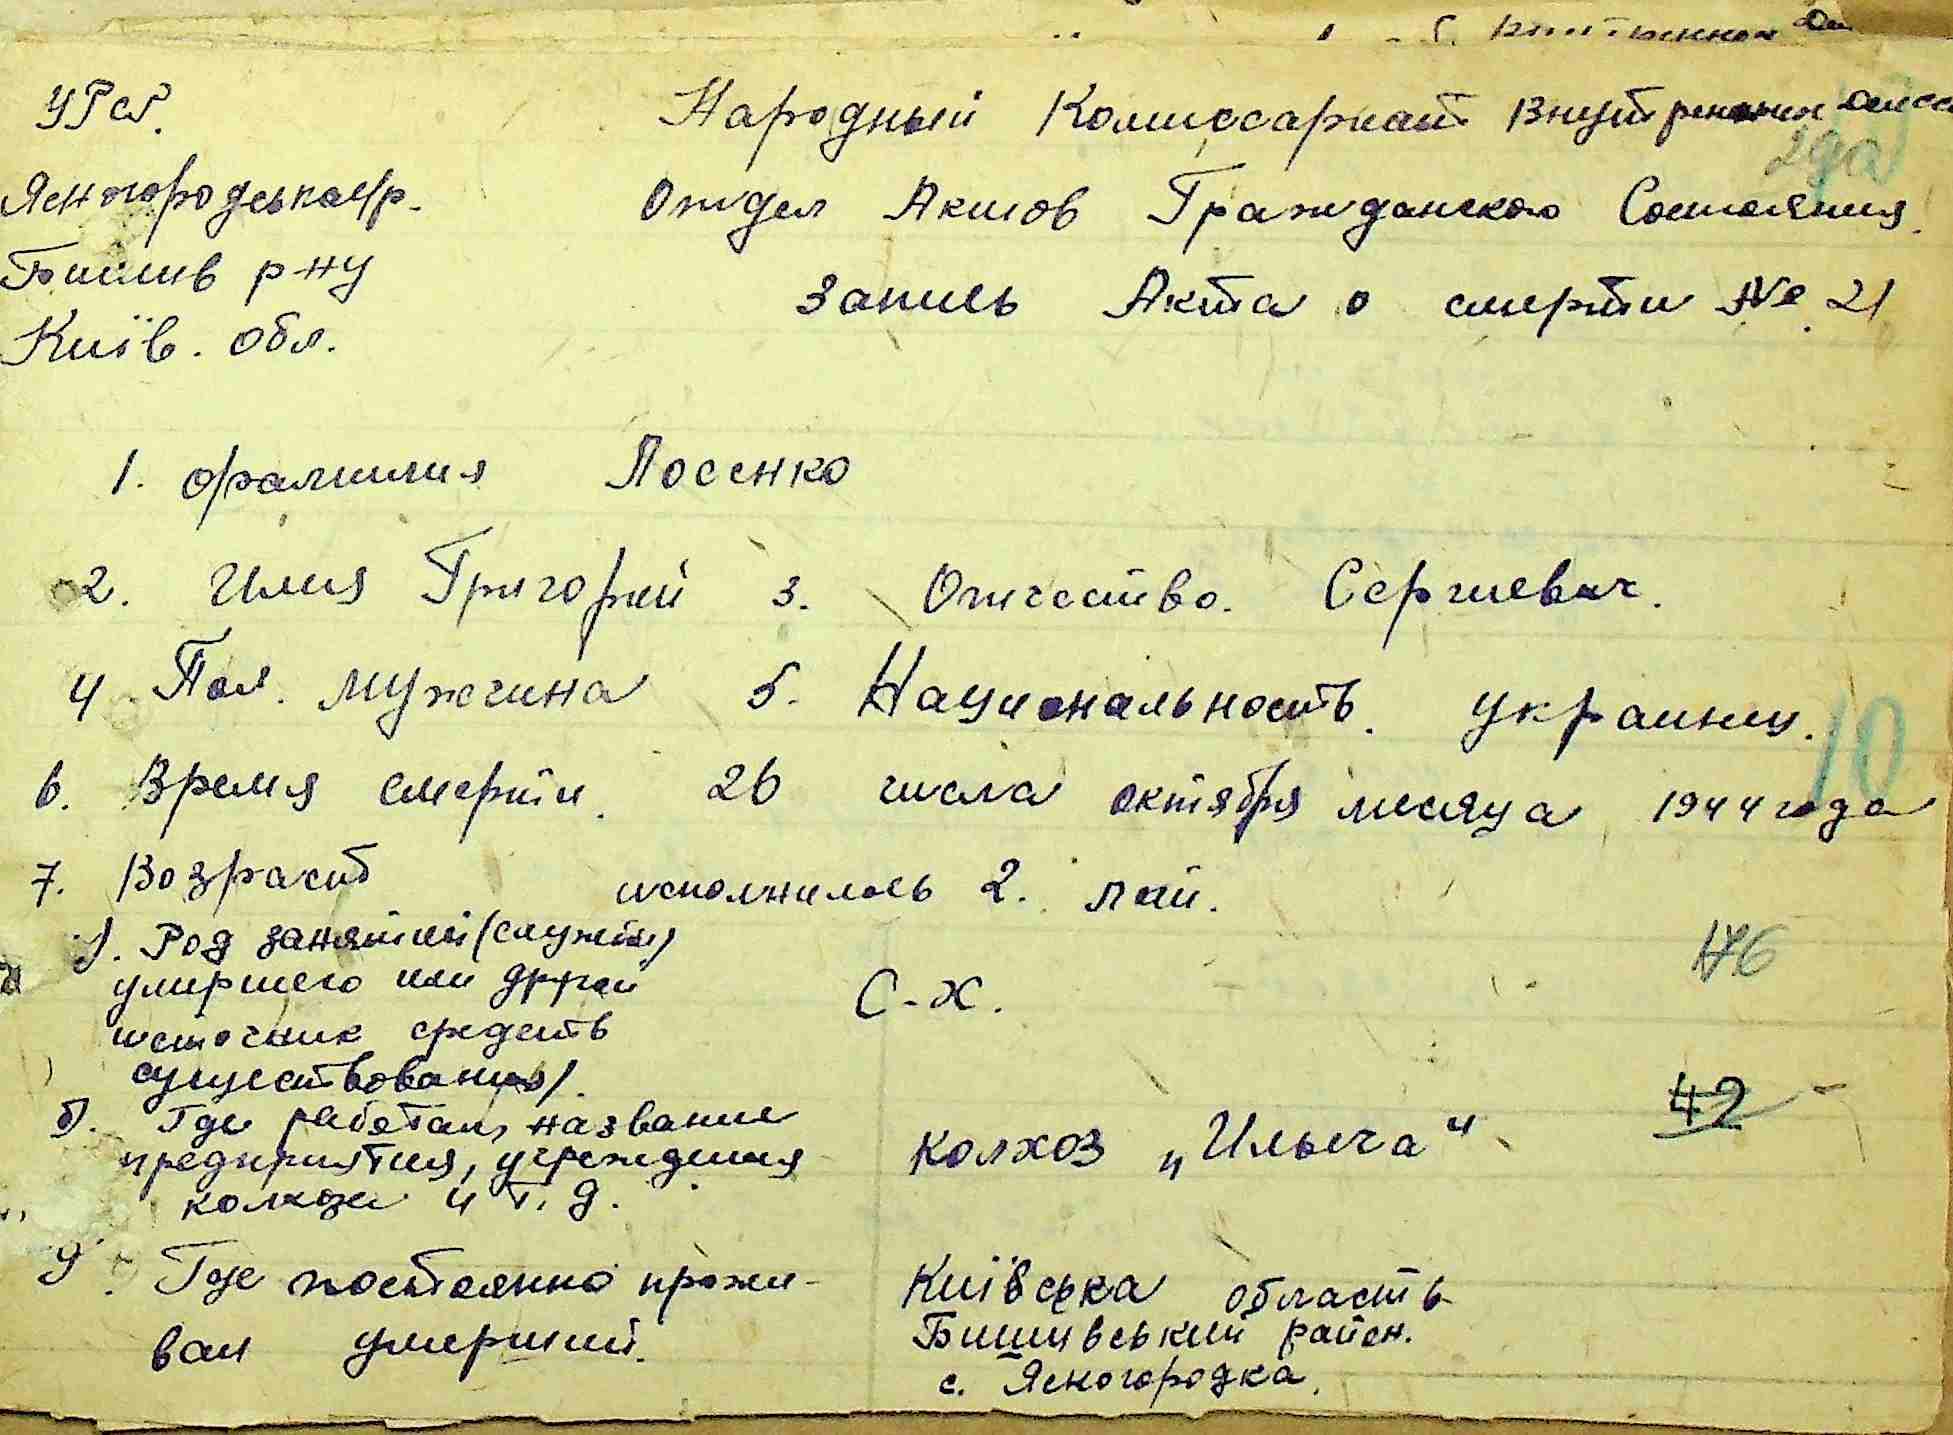 УРСР.
Народный Комиссариат Внутренних
Ясногородська с/р.
Отдел Актов Гражданского Состояния.
Бишив р-ну
Запись Акта о смерти № 21
Київ. обл.
1. фамилия Лосенко
2. Имя Григорий 3. Отчество. Сергиевич.
4 Пол. мужчина 5. Национальность. украинец.
10
6. Время смерти. 26 числа октября месяца 1944 года
7. Возраст исполнилось 2. лет.
Род занятий (служби)
176
умершего или другой
С-Х.
источник средств
существования).
42
б). Где работал, название
предприятия, учреждения
колхоз „Ильича"
колхоза и т. д.
9. Где постоянно прожи-
Київська область
Бишивський район.
вал умерший.
с. Ясногородка.